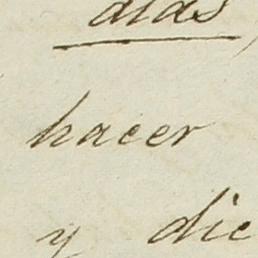 dias,
hacer
y dic